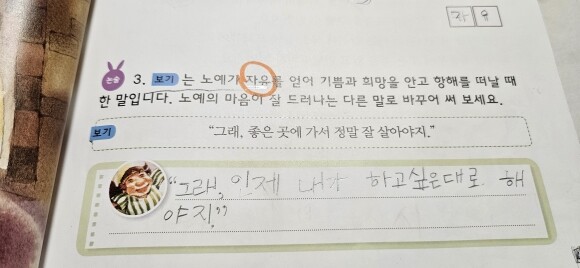 자유
논술 3. 보기 는 노예가 자유를 얻어 기쁨과 희망을 안고 항해를 떠날 때
한 말입니다. 노예의 마음이 잘 드러나는 다른 말로 바꾸어 써 보세요.
보기 “그래, 좋은 곳에 가서 정말 잘 살아야지.”
“그래, 인제 내가 하고싶은대로 해
야지.”